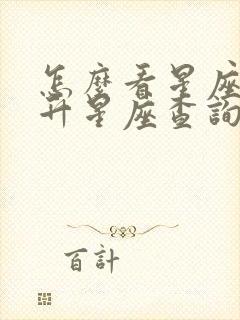 怎麼看星座
升星座查詢
百計